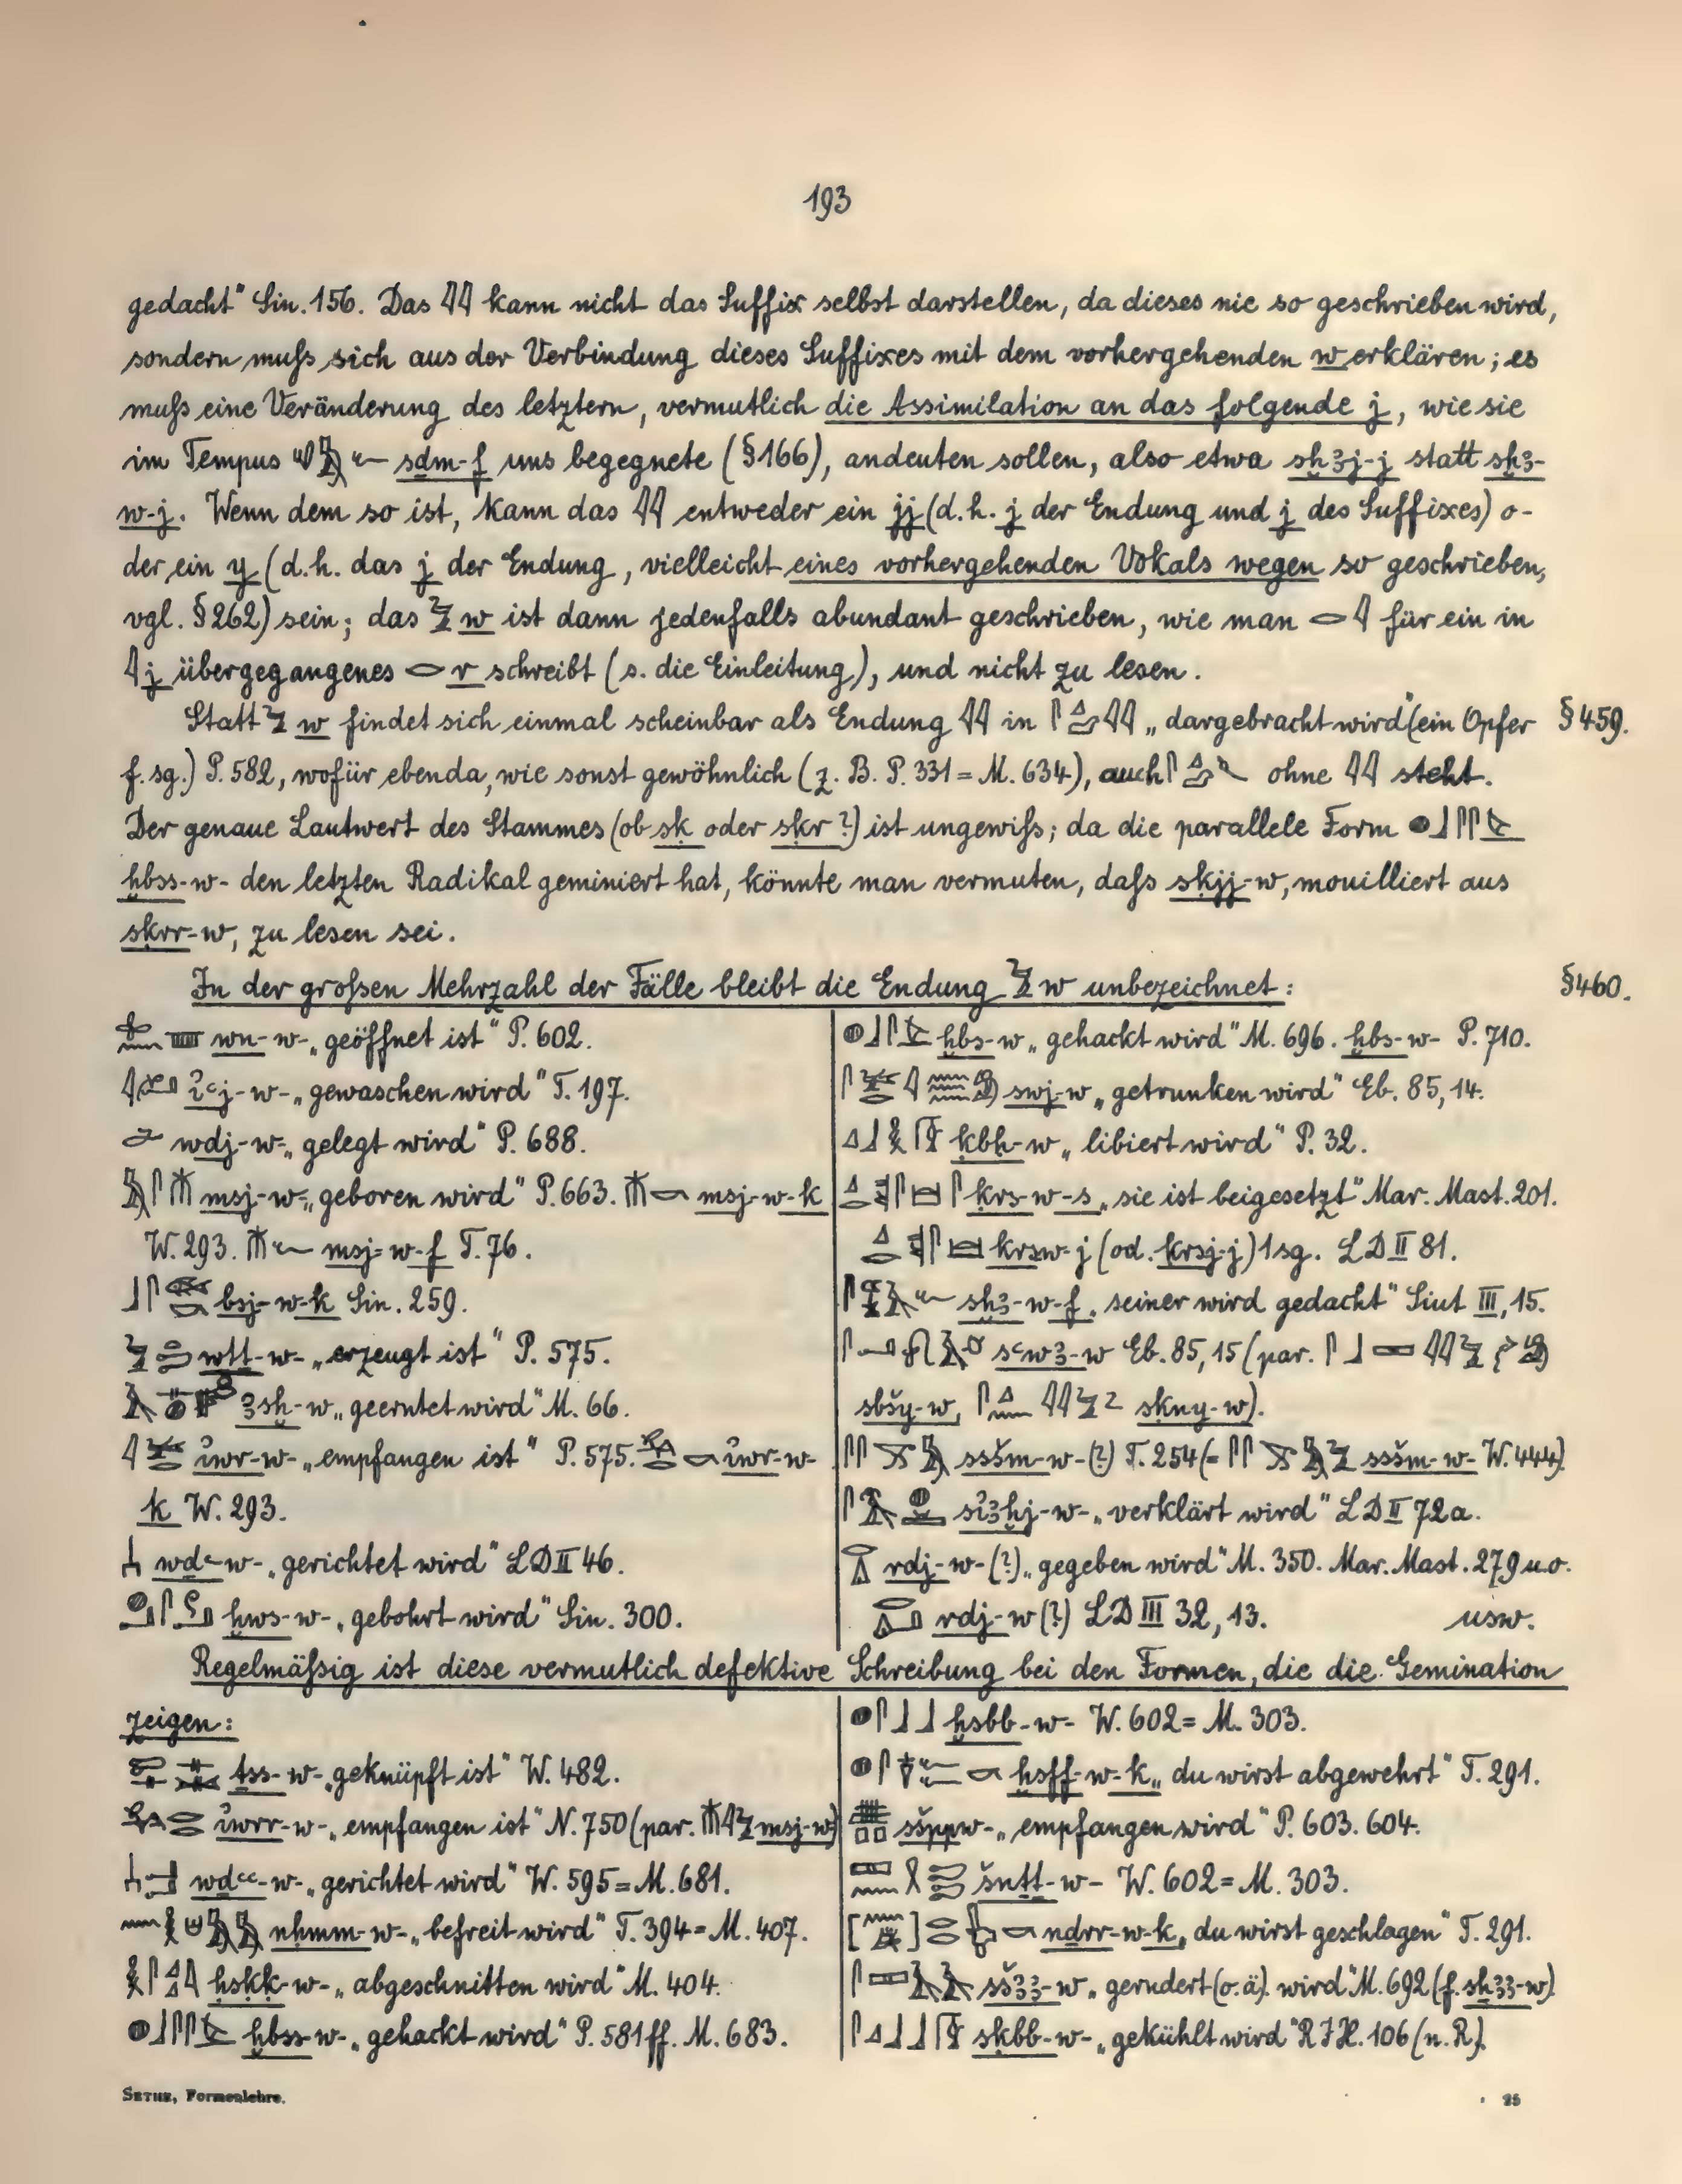 193
gedacht" Sin. 156. Das 𓇌 kann nicht das Suffix selbst darstellen, da dieses nie so geschrieben wird,
sondern muß sich aus der Verbindung dieses Suffixes mit dem vorhergehenden w erklären; es
muß eine Veränderung des letztern, vermutlich die Assimilation an das folgende j, wie sie
im Tempus sḏm-f uns begegnete (§166), andeuten sollen, also etwa sḫꜣj-j statt sḫꜣ-
w-j. Wenn dem so ist, kann das 𓇌 entweder ein jj (d.h. j der Endung und j des Suffixes) o-
der ein y (d.h. das j der Endung, vielleicht eines vorhergehenden Vokals wegen so geschrieben,
vgl. §262) sein; das 𓅱 w ist dann jedenfalls abundant geschrieben, wie man 𓂋𓇋 für ein in
𓇋 j übergegangenes 𓂋 r schreibt (s. die Einleitung), und nicht zu lesen.
Statt 𓅱 w findet sich einmal scheinbar als Endung 𓇌 in „dargebracht wird" (ein Opfer §459.
f. sg.) P. 582, wofür ebenda, wie sonst gewöhnlich (z. B. P. 331 = M. 634), auch ohne 𓇌 steht.
Der genaue Lautwert des Stammes (ob sḳ oder sḳr?) ist ungewiß; da die parallele Form
ḫbss-w- den letzten Radikal geminiert hat, könnte man vermuten, daß sḳjj-w, mouilliert aus
sḳrr-w, zu lesen sei.
In der großen Mehrzahl der Fälle bleibt die Endung 𓅱 w unbezeichnet: §460.
wn-w- „geöffnet ist" P. 602.
ỉꜥj-w- „gewaschen wird" T. 197.
wdj-w- „gelegt wird" P. 688.
msj-w- „geboren wird" P. 663. msj-w-k
W. 293. msj-w-f T. 76.
bsj-w-k Sin. 259.
wtt-w- „erzeugt ist" P. 575.
ꜣsḫ-w „geerntet wird" M. 66.
ỉwr-w- „empfangen ist" P. 575. ỉwr-w-
k W. 293.
wdꜥ-w- „gerichtet wird" LD II 46.
ḫws-w- „gebohrt wird" Sin. 300.
ḫbs-w „gehackt wird" M. 696. ḫbs-w- P. 710.
swj-w „getrunken wird" Eb. 85, 14.
ḳbḥ-w „libiert wird" P. 32.
ḳrs-w-s „sie ist beigesetzt" Mar. Mast. 201.
ḳrsw-j (od. ḳrsj-j) 1 sg. LD II 81.
sḫꜣ-w-f „seiner wird gedacht" Siut III, 15.
sꜥwꜣ-w Eb. 85, 15 (par.
sbšy-w, sḳny-w).
sšm-w-(?) T. 254 (= W. 444)
sỉꜣḫj-w- „verklärt wird" LD II 72a.
rdj-w-(?) „gegeben wird" M. 350. Mar. Mast. 279 u.o.
rdj-w (?) LD III 32, 13. usw.
Regelmäßig ist diese vermutlich defektive Schreibung bei den Formen, die die Gemination
zeigen:
ṯss-w- „geknüpft ist" W. 482.
ỉwrr-w- „empfangen ist" N. 750 (par. msj-w)
wdꜥꜥ-w- „gerichtet wird" W. 595 = M. 681.
nḥmm-w- „befreit wird" T. 394 = M. 407.
ḥsḳḳ-w- „abgeschnitten wird" M. 404.
ḫbss-w- „gehackt wird" P. 581 ff. M. 683.
ḫsbb-w- W. 602 = M. 303.
ḫsff-w-k „du wirst abgewehrt" T. 291.
sšppw- „empfangen wird" P. 603. 604.
šnṯṯ-w- W. 602 = M. 303.
nḏrr-w-k „du wirst geschlagen" T. 291.
sšꜣꜣ-w „gerudert (o.ä.) wird" M. 692 (f. sḫꜣꜣ-w)
sḳbb-w- „gekühlt wird" R I H. 106 (n. R.)
SETHE, Formenlehre. 25